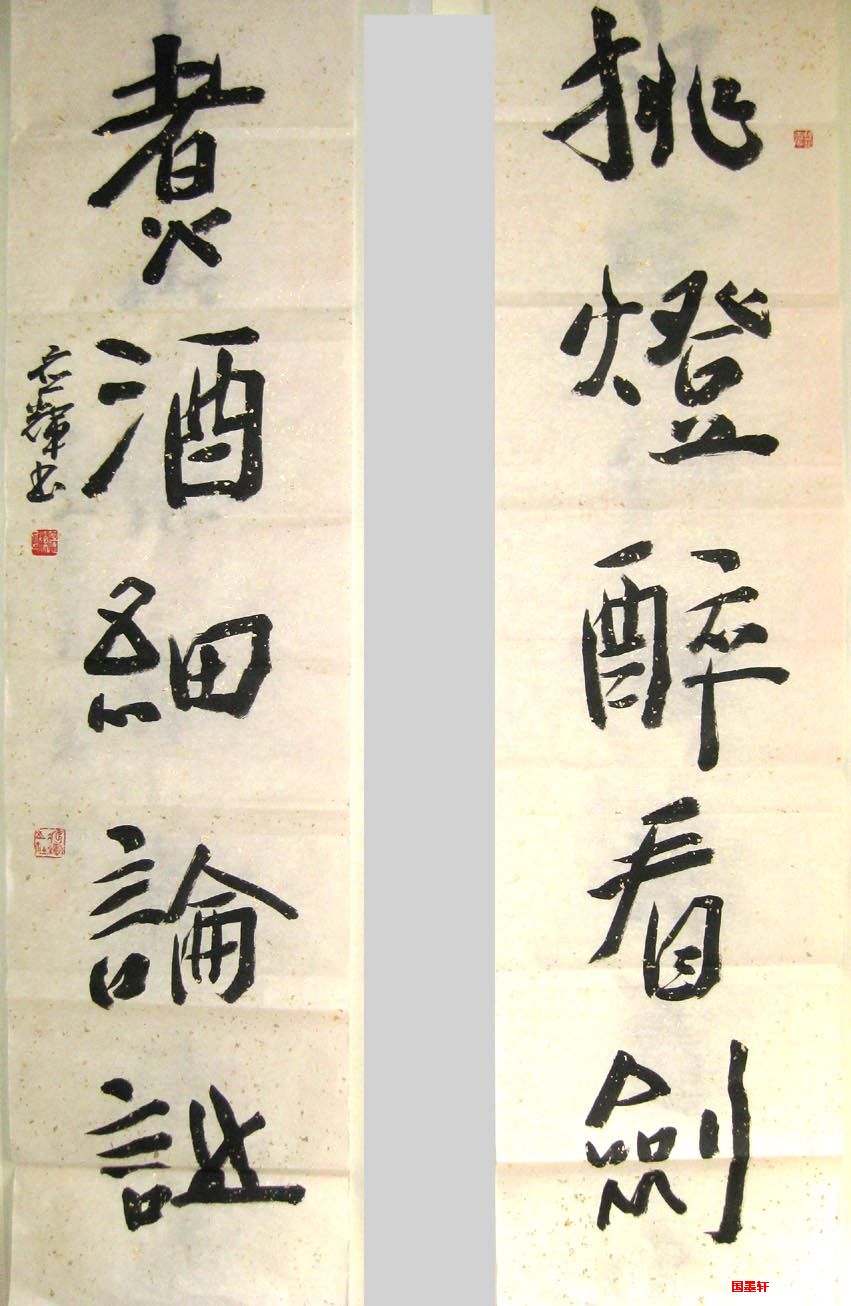 挑燈醉看劍
煮酒細論詩
輝书
国墨轩